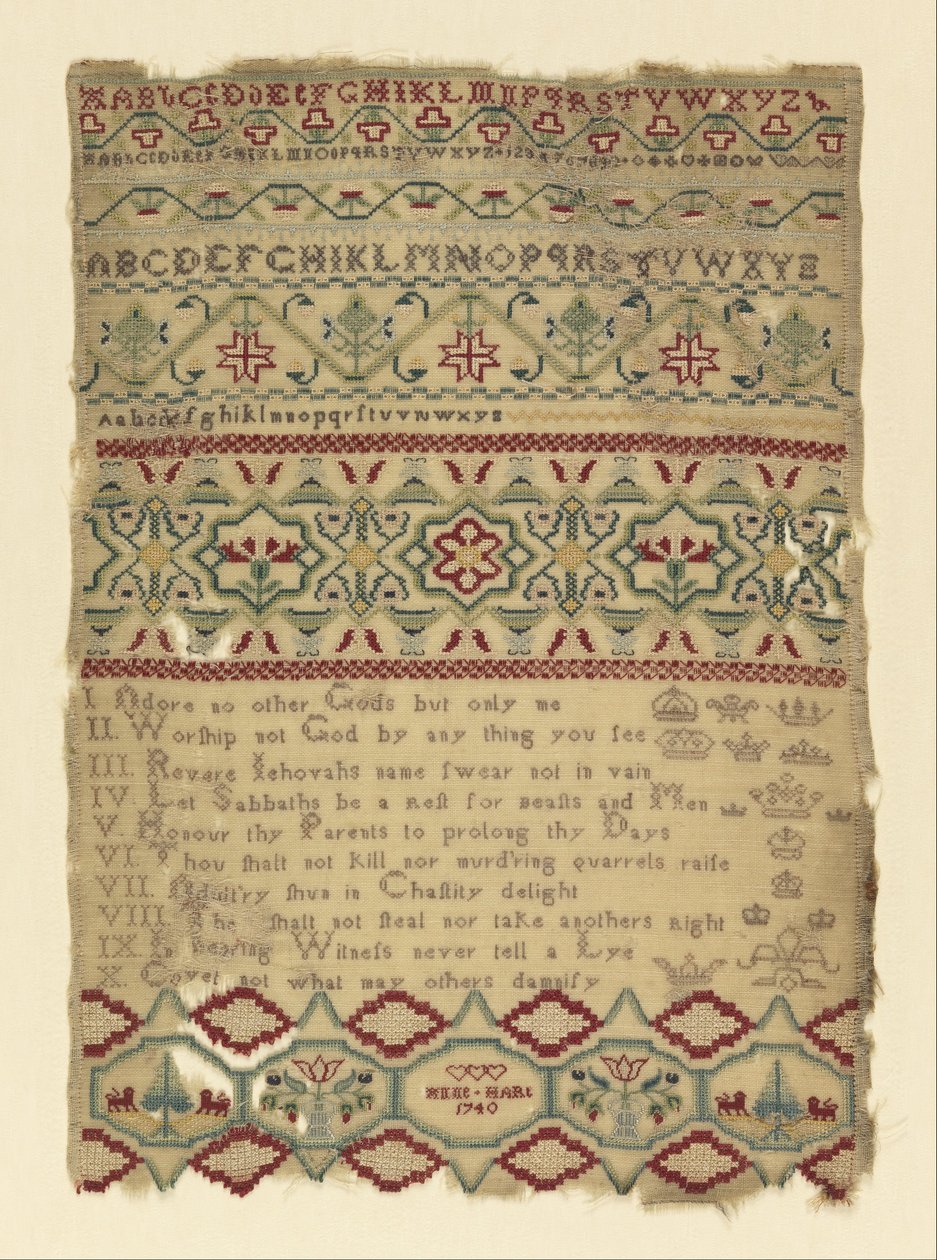 AABbCcDdEeFGHIKLMNPQRSTVWXYZ
AABbCcDdEeFGHIKLMNOPQRSTVWXYZ
ABCDEFGHIKLMNOPQRSTVWXYZ
Aabcdefghiklmnopqrſtuvwxyz
I Adore no other Gods but only me
II. Worſhip not God by any thing you ſee
III. Revere Jehovahs name ſwear not in vain
IV. Let Sabbaths be a Reſt for Beaſts and Men
V. Honour thy Parents to prolong thy Days
VI. Thou ſhalt not Kill nor murd'ring quarrels raiſe
VII. Adult'ry ſhun in Chaſtity delight
VIII. ſhalt not ſteal nor take anothers Right
IX In bearing Witneſs never tell a Lye
X. Covet not what may others damnify
HARt
1740